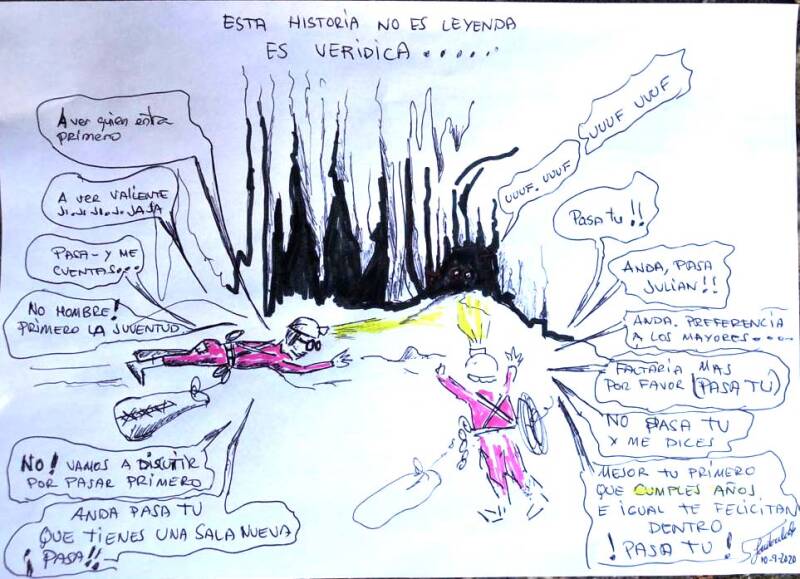 ESTA HISTORIA NO ES LEYENDA
ES VERIDICA......
A ver quien esta
primero
A VER VALIENTE
JI.JI.JI.JI.JAJA
PASA - Y ME
CUENTAS...
NO HOMBRE!
PRIMERO LA JUVENTUD
NO! VAMOS A DISCUTIR
POR PASAR PRIMERO
ANDA PASA TU
QUE TIENES UNA SALA NUEVA
¡PASA!!
UUUF UUUF
UUUF. UUUF
PASA TU!!
ANDA, PASA
JULIAN!!
ANDA. PREFERENCIA
A LOS MAYORES.....
FALTARIA MAS
POR FAVOR (PASA TU)
NO PASA TU
Y ME DICES
MEJOR TU PRIMERO
QUE CUMPLES AÑOS
E IGUAL TE FELICITAN
DENTRO
¡PASA TU!
10-9-2020